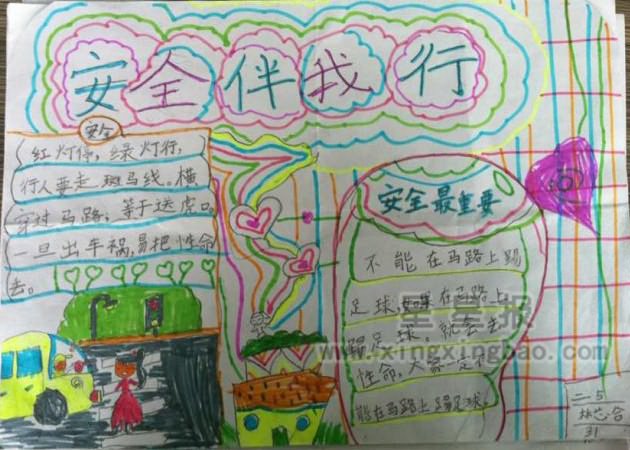 安全伴我行
安全
红灯停，绿灯行，
行人要走斑马线，横
穿过马路，等于送虎口
一旦出车祸，易把性命
丢。
安全最重要
不能在马路上踢
足球，如果在马路上
踢足球，就会丢
性命，大家一定不
能在马路上踢足球。
星星报
www.xingxingbao.com
二.5
31